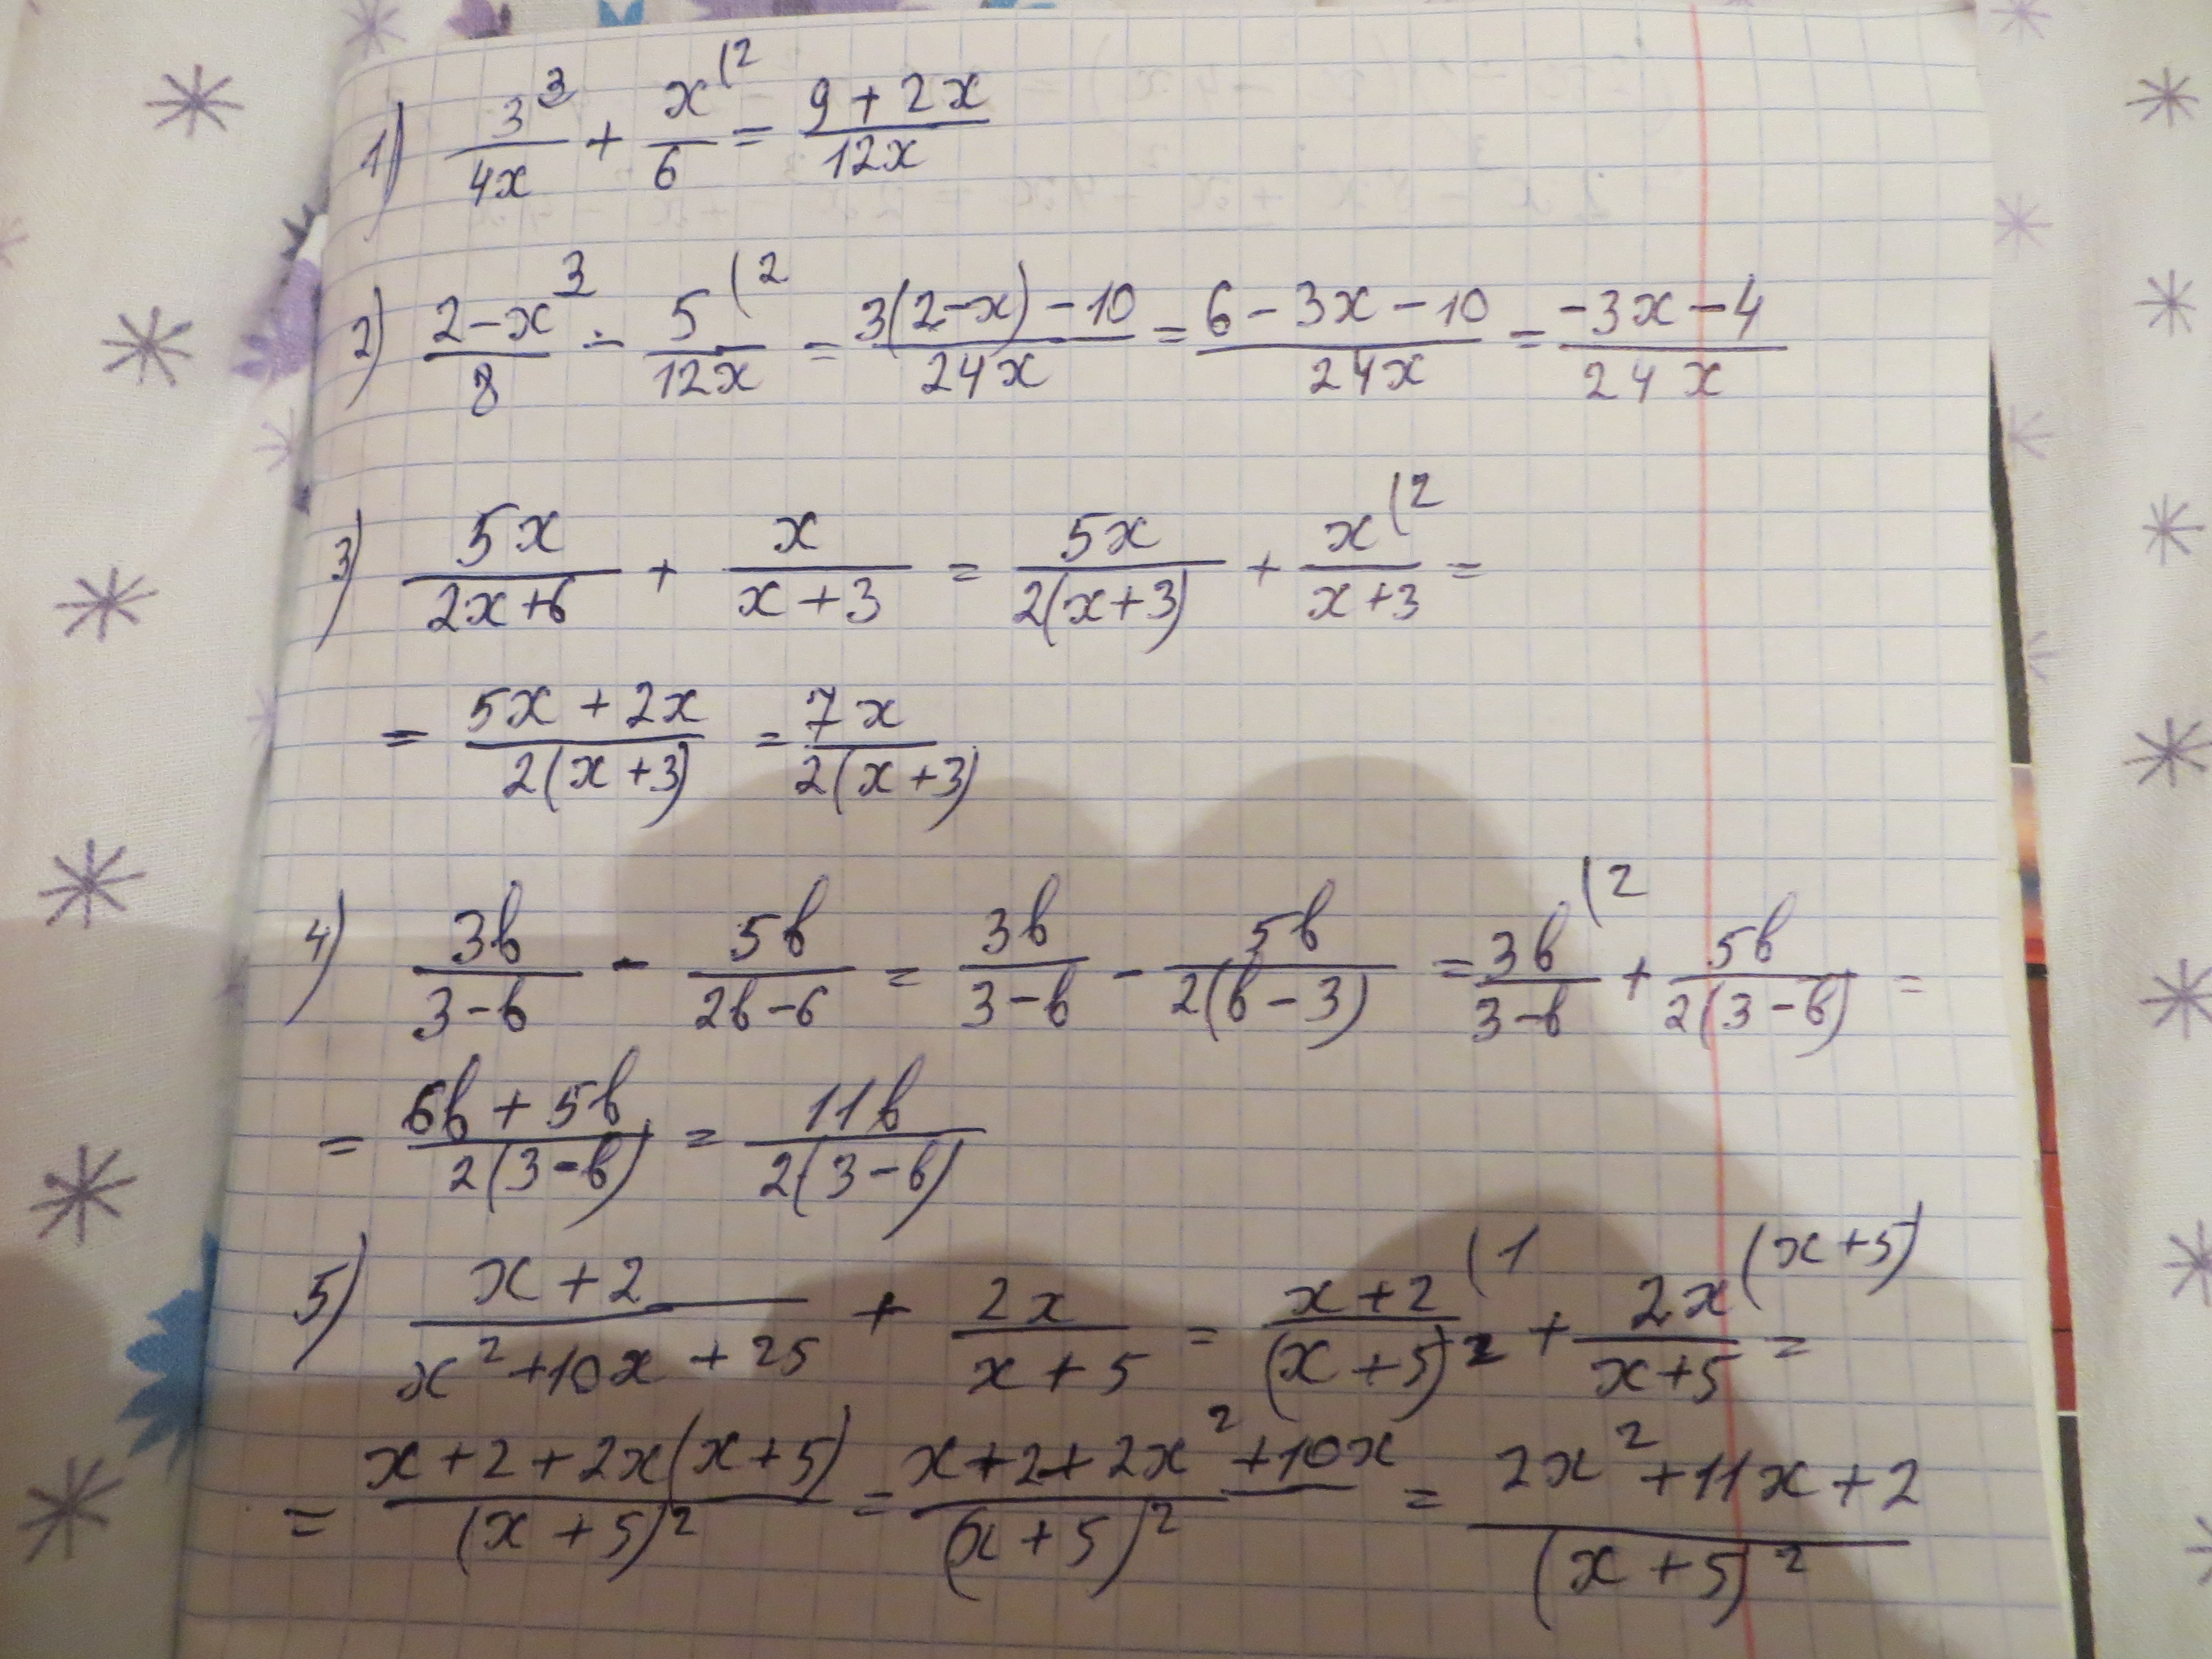 1) 3^3/4x + x^(2/6 = 9+2x/12x
2) 2-x^3/8 - 5^(2/12x = 3(2-x)-10/24x = 6-3x-10/24x = -3x-4/24x
3) 5x/2x+6 + x/x+3 = 5x/2(x+3) + x^(2/x+3 =
= 5x+2x/2(x+3) = 7x/2(x+3)
4) 3b/3-b - 5b/2b-6 = 3b/3-b - 5b/2(b-3) = 3b^(2/3-b + 5b/2(3-b) =
= 6b+5b/2(3-b) = 11b/2(3-b)
5) x+2/x²+10x+25 + 2x/x+5 = x+2^(1/(x+5)² + 2x^(x+5)/x+5 =
= x+2+2x(x+5)/(x+5)² = x+2+2x²+10x/(x+5)² = 2x²+11x+2/(x+5)²